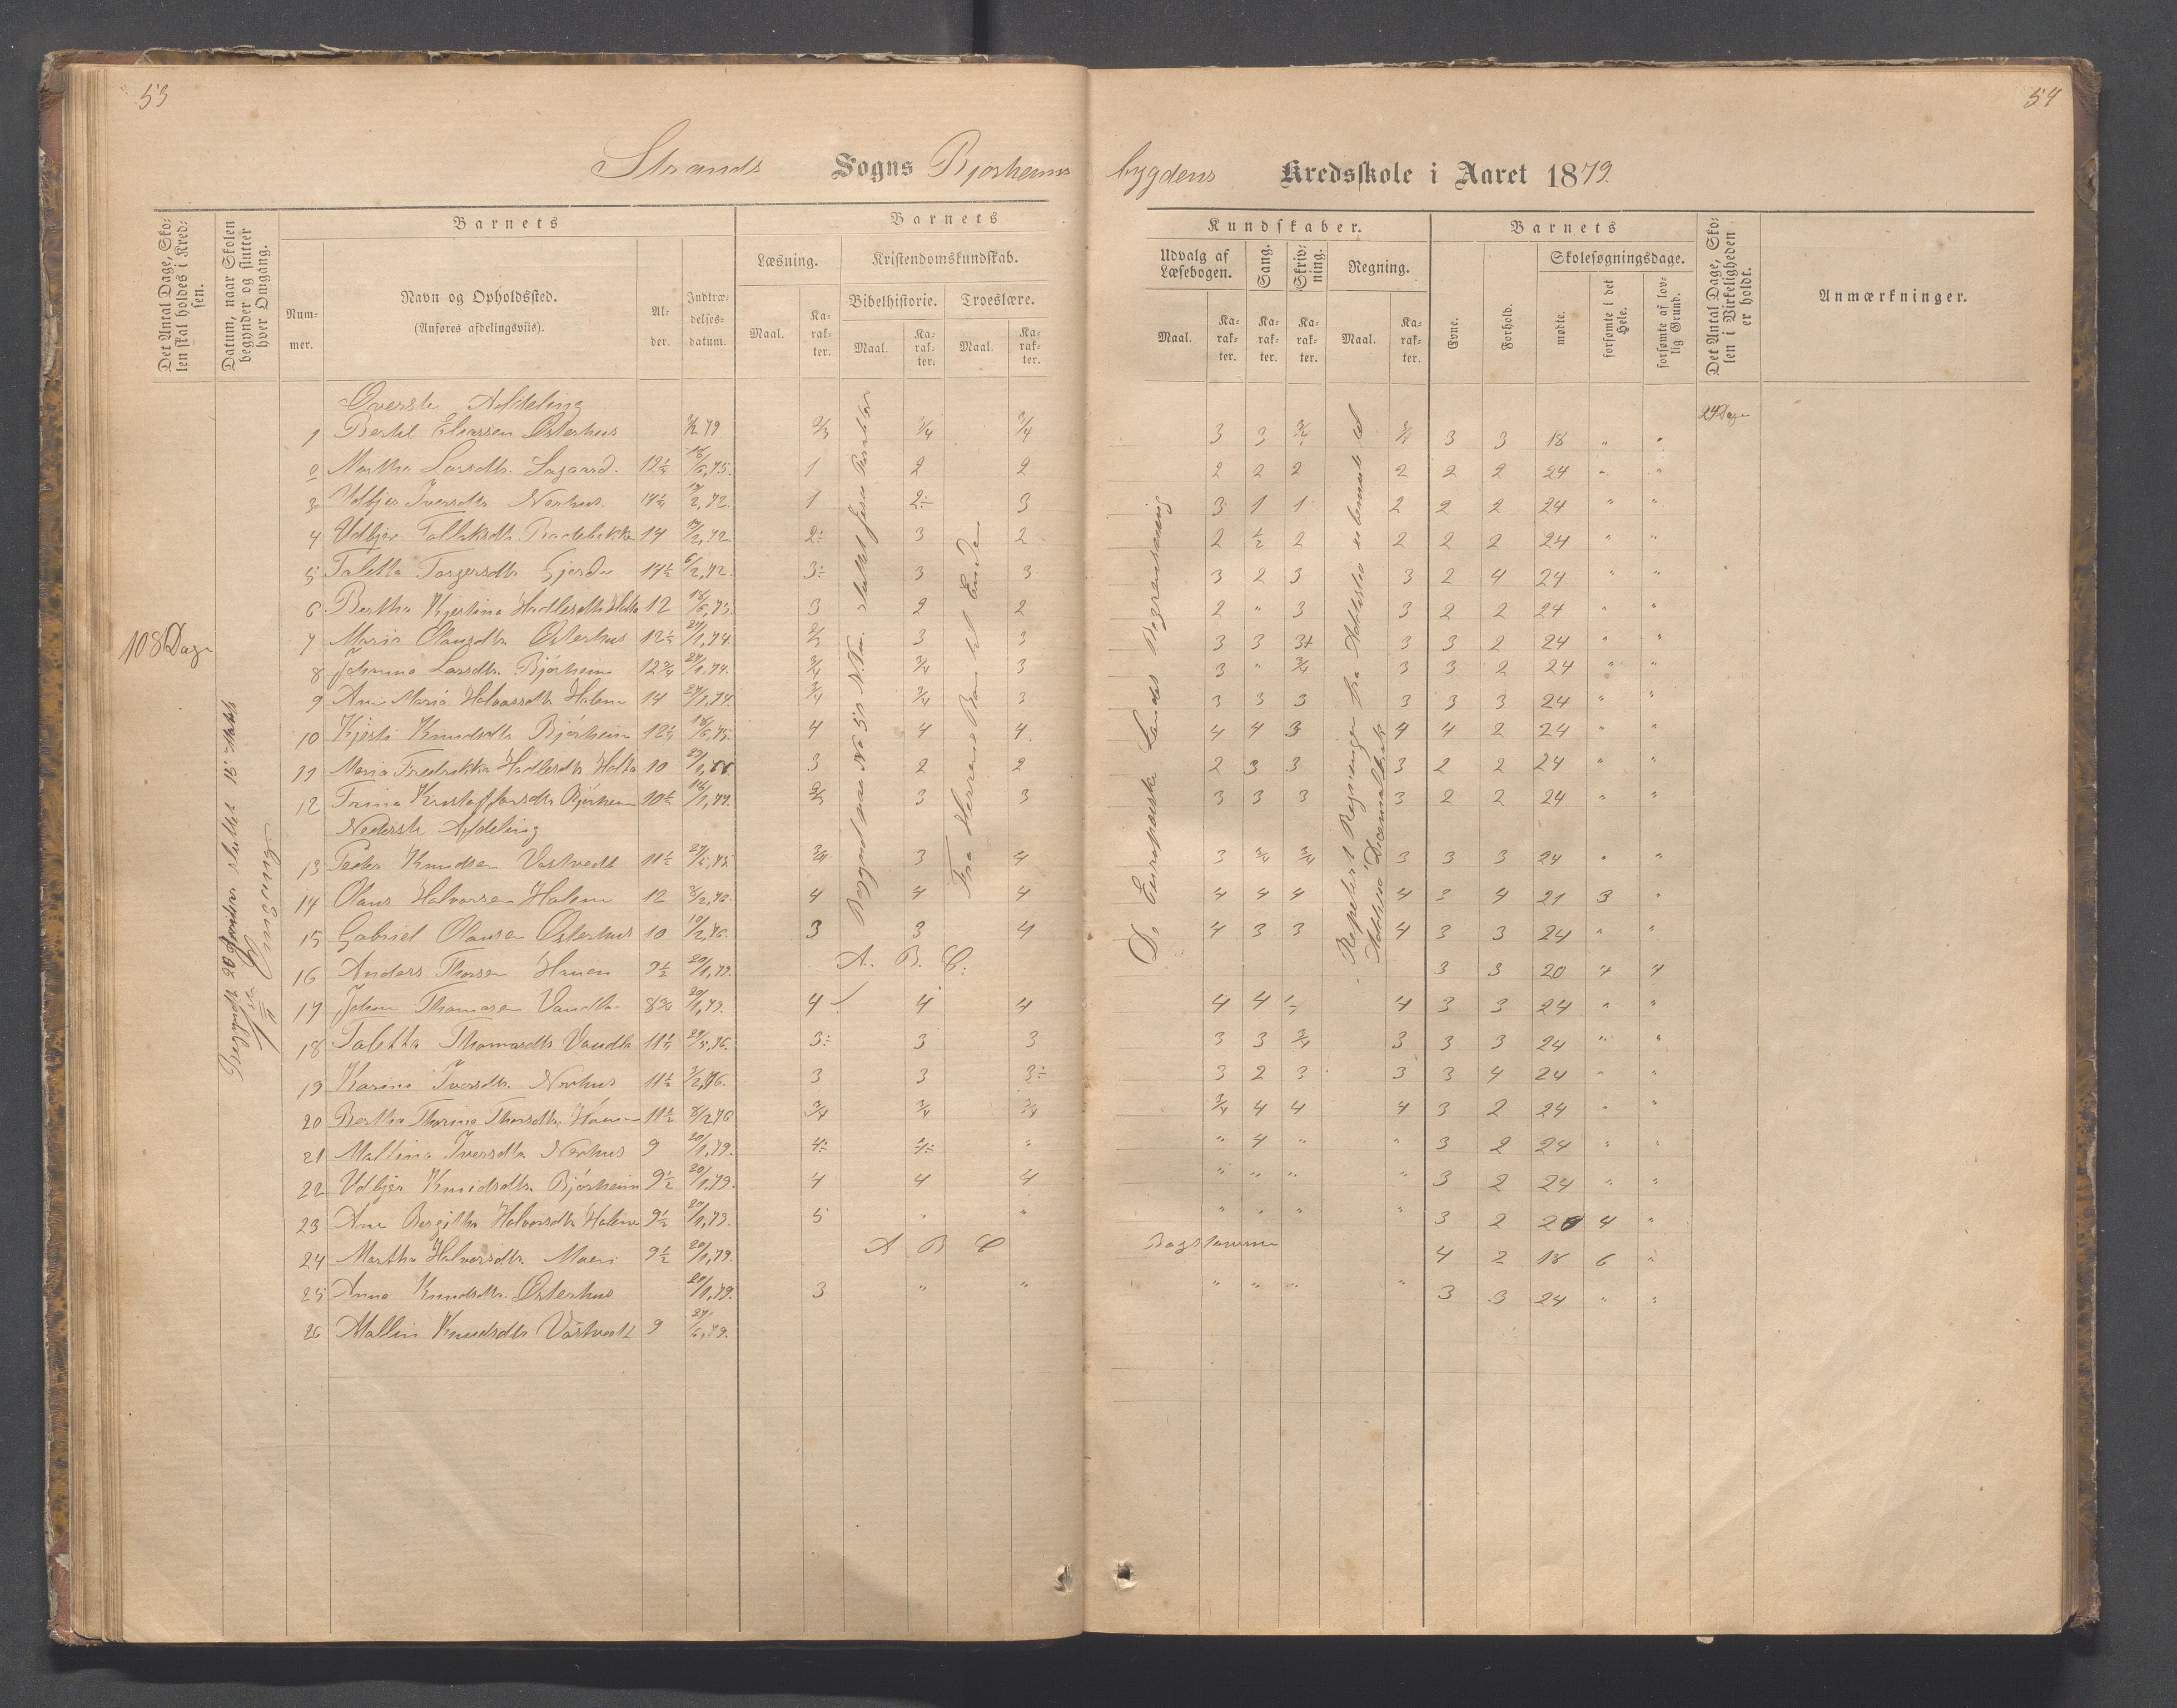 53
54
Strands Sogns Bjørheims bygdens Kredsskole i Aaret 1879.
Det Antal Dage, Skolen skal holdes i Kredsen.
Datum, naar Skolen begynder og slutter hver Omgang.
Barnets
Nummer.
Navn og Opholdssted.
(Anføres afdelingsviis).
Alder.
Indtrædelsesdatum.
Barnets
Læsning.
Kristendomskundskab.
Bibelhistorie. Troeslære.
Maal. Karakter. Maal. Karakter. Maal. Karakter.
Kundskaber.
Udvalg af Læsebogen. Sang. Skrivning. Regning.
Maal. Karakter. Karakter. Karakter. Maal. Karakter.
Barnets
Evne. Forhold.
Skolesøgningsdage.
mødte. forsømte i det Hele. forsømte af lovlig Grund.
Det Antal Dage, Skolen i Virkeligheden er holdt.
Anmærkninger.
108 Dage
1ste Omgang
24 Dage
De Europæiske Landes Begrændsning
Øverste Afdeling
1 Bertil Eliassen Østerhus 3/2 79 2/3 3/4 3/4 3 3 3/4 3/4 3 3 18 " "
2 Martha Larsdtr. 12½ 16/6,75. 1 2 2 2 2 2 2 2 2 24 " "
3 Udbjør Iversdtr Nerhus 14½ 2,72. 1 2÷ 3 3 1 1 2 2 2 24 " "
4 Udbjør 14 2,72. 2÷ 3 2 2 ½ 2 2 2 2 24 " "
5 Taletta Torgersdtr Gjerde 14½ 6/2,72. 3÷ 3 3 3 2 3 3 2 4 24 " "
6 Bertha Kjerstina 12 16/6,75. 3 2 2 2 " 3 3 2 2 24 " "
7 Maria Olausdtr Østerhus 12½ 24/1,74. 2/3 3 3 3 3 3+ 3 3 2 24 " "
8 Johanna Larsdtr. Bjørheim 12¾ 24/1,74. 3/4 3/4 3 3 " 3/4 3 3 2 24 " "
9 Ane Maria Halvorsdtr Holem 14 24/1,74. 3/4 3/4 3 3 3 3 3 3 3 24 " "
10 Kjersti Knudsdtr Bjørheim 12½ 16/6,75. 4 4 4. 4 4 3 4 4 2 24 " "
11 Maria Fredrikka 10 3 2 2 2 3 3 3 2 2 24 " "
12 Trina Kristoffersdtr Bjørheim 10½ 16/1,77. 2/3 3 3 3 3 3 3 2 2 24 " "
Nederste Afdeling
13 Peder Knudsen Vastvedt 11½ 3/4 3 4 3 3/4 3/4 3 3 3 24 " "
14 Olaus Halvorsen Holem 12 8/2,76. 4 4 4 4 4 4 4 3 4 21 3 "
15 Gabriel Olausen Østerhus 10 10/2,76. 3 3 4 4 3 3 4 3 3 24 " "
16 Anders Thorsen Hauen 9½ 20/1,79. A. B. C. 3 3 20 4 4
17 Johan Thomasen 8¾ 20/1,79. 4 4 4 4 4 4 3 3 24 " "
18 Taletta Thomasdtr 11½ 3÷ 3 3 3 3 3/4 3 3 3 24 " "
19 Karina Iversdtr. Nerhus 11½ 3/2,76. 3 3 3÷ 3 2 3 3 3 4 24 " "
20 Bertha Thorina Thorsdtr. Hauen 11½ 8/2 76 3/4 3/4 3/4 3/4 4 4 4 3 2 24 " "
21 Mallina Iversdtr Nerhus 9 20/1,79. 4÷ 4÷ " " 4 " " 3 2 24 " "
22 Udbjør Knudsdtr. Bjørheim 9½ 20/1,79. 4 4 4 " " " " 3 2 24 " "
23 Ane Bergitha Halvorsdtr Holem 9½ 20/1,79. 5 " " " " " " 3 2 20 4 "
24 Martha Halvorsdtr. Moen 9½ 20/1,79. A B C Bogstaverne 4 2 18 6 "
25 Anna Knudsdtr. Østerhus 20/1,79. 3 " " " " " " 3 3 24 " "
26 Mallin Knudsdtr Vastvedt 9